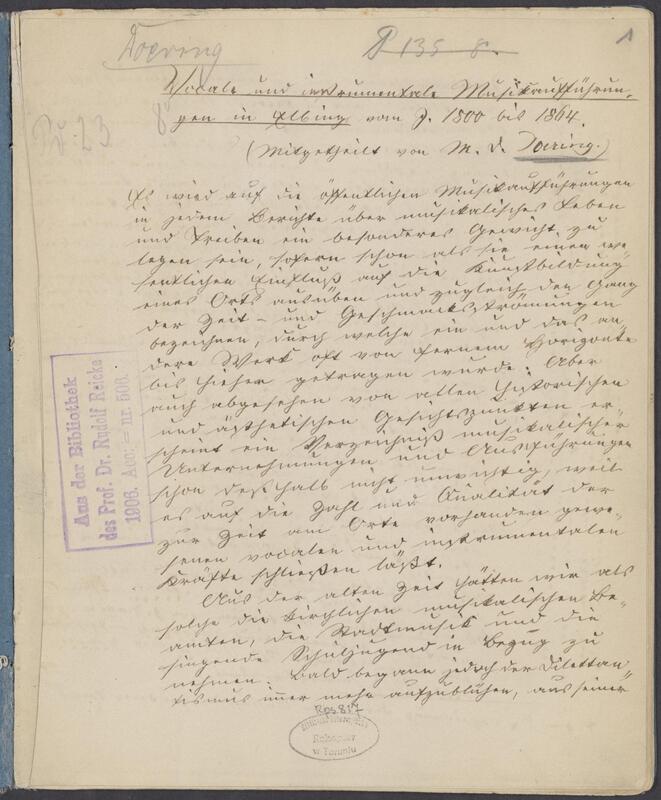 Doering
P 135 8.
1
Vocale und instrumentale Musikaufführun-
gen in Elbing vom J. 1800 bis 1864.
(Mitgetheilt von M. D. Doering.)
Es wird auf die öffentlichen Musikaufführungen
in jedem Berichte über musikalisches Leben
und Treiben ein besonderes Gewicht zu
legen sein, sofern schon als sie einen we-
sentlichen Einfluß auf die Kunstbildung
eines Orts ausüben und zugleich den Gang
der Zeit- und Geschmacksströmungen
bezeichnen, durch welche ein und das an-
dere Werk oft von fernem Horizonte
bis hieher getragen wurde. Aber
auch abgesehen von allen historischen
und ästhetischen Gesichtspunkten er-
scheint ein Verzeichniß musikalischer
Unternehmungen und Ausführungen
schon deßhalb nicht unwichtig, weil
es auf die Zahl und Qualität der
zur Zeit am Orte vorhanden gewe-
senen vocalen und instrumentalen
Kräfte schließen läßt.
Aus der alten Zeit hätten wir als
solche die kirchlichen musikalischen Be-
amten, die Stadtmusik und die
singende Schuljugend in Bezug zu
nehmen. Bald begann jedoch der Dilettan-
tismus immer mehr aufzublühen, aus seiner
Aus der Bibliothek
des Prof. Dr. Rudolf Reicke
1906. Acc. = nr. 506.
Rps 817
w Toruniu